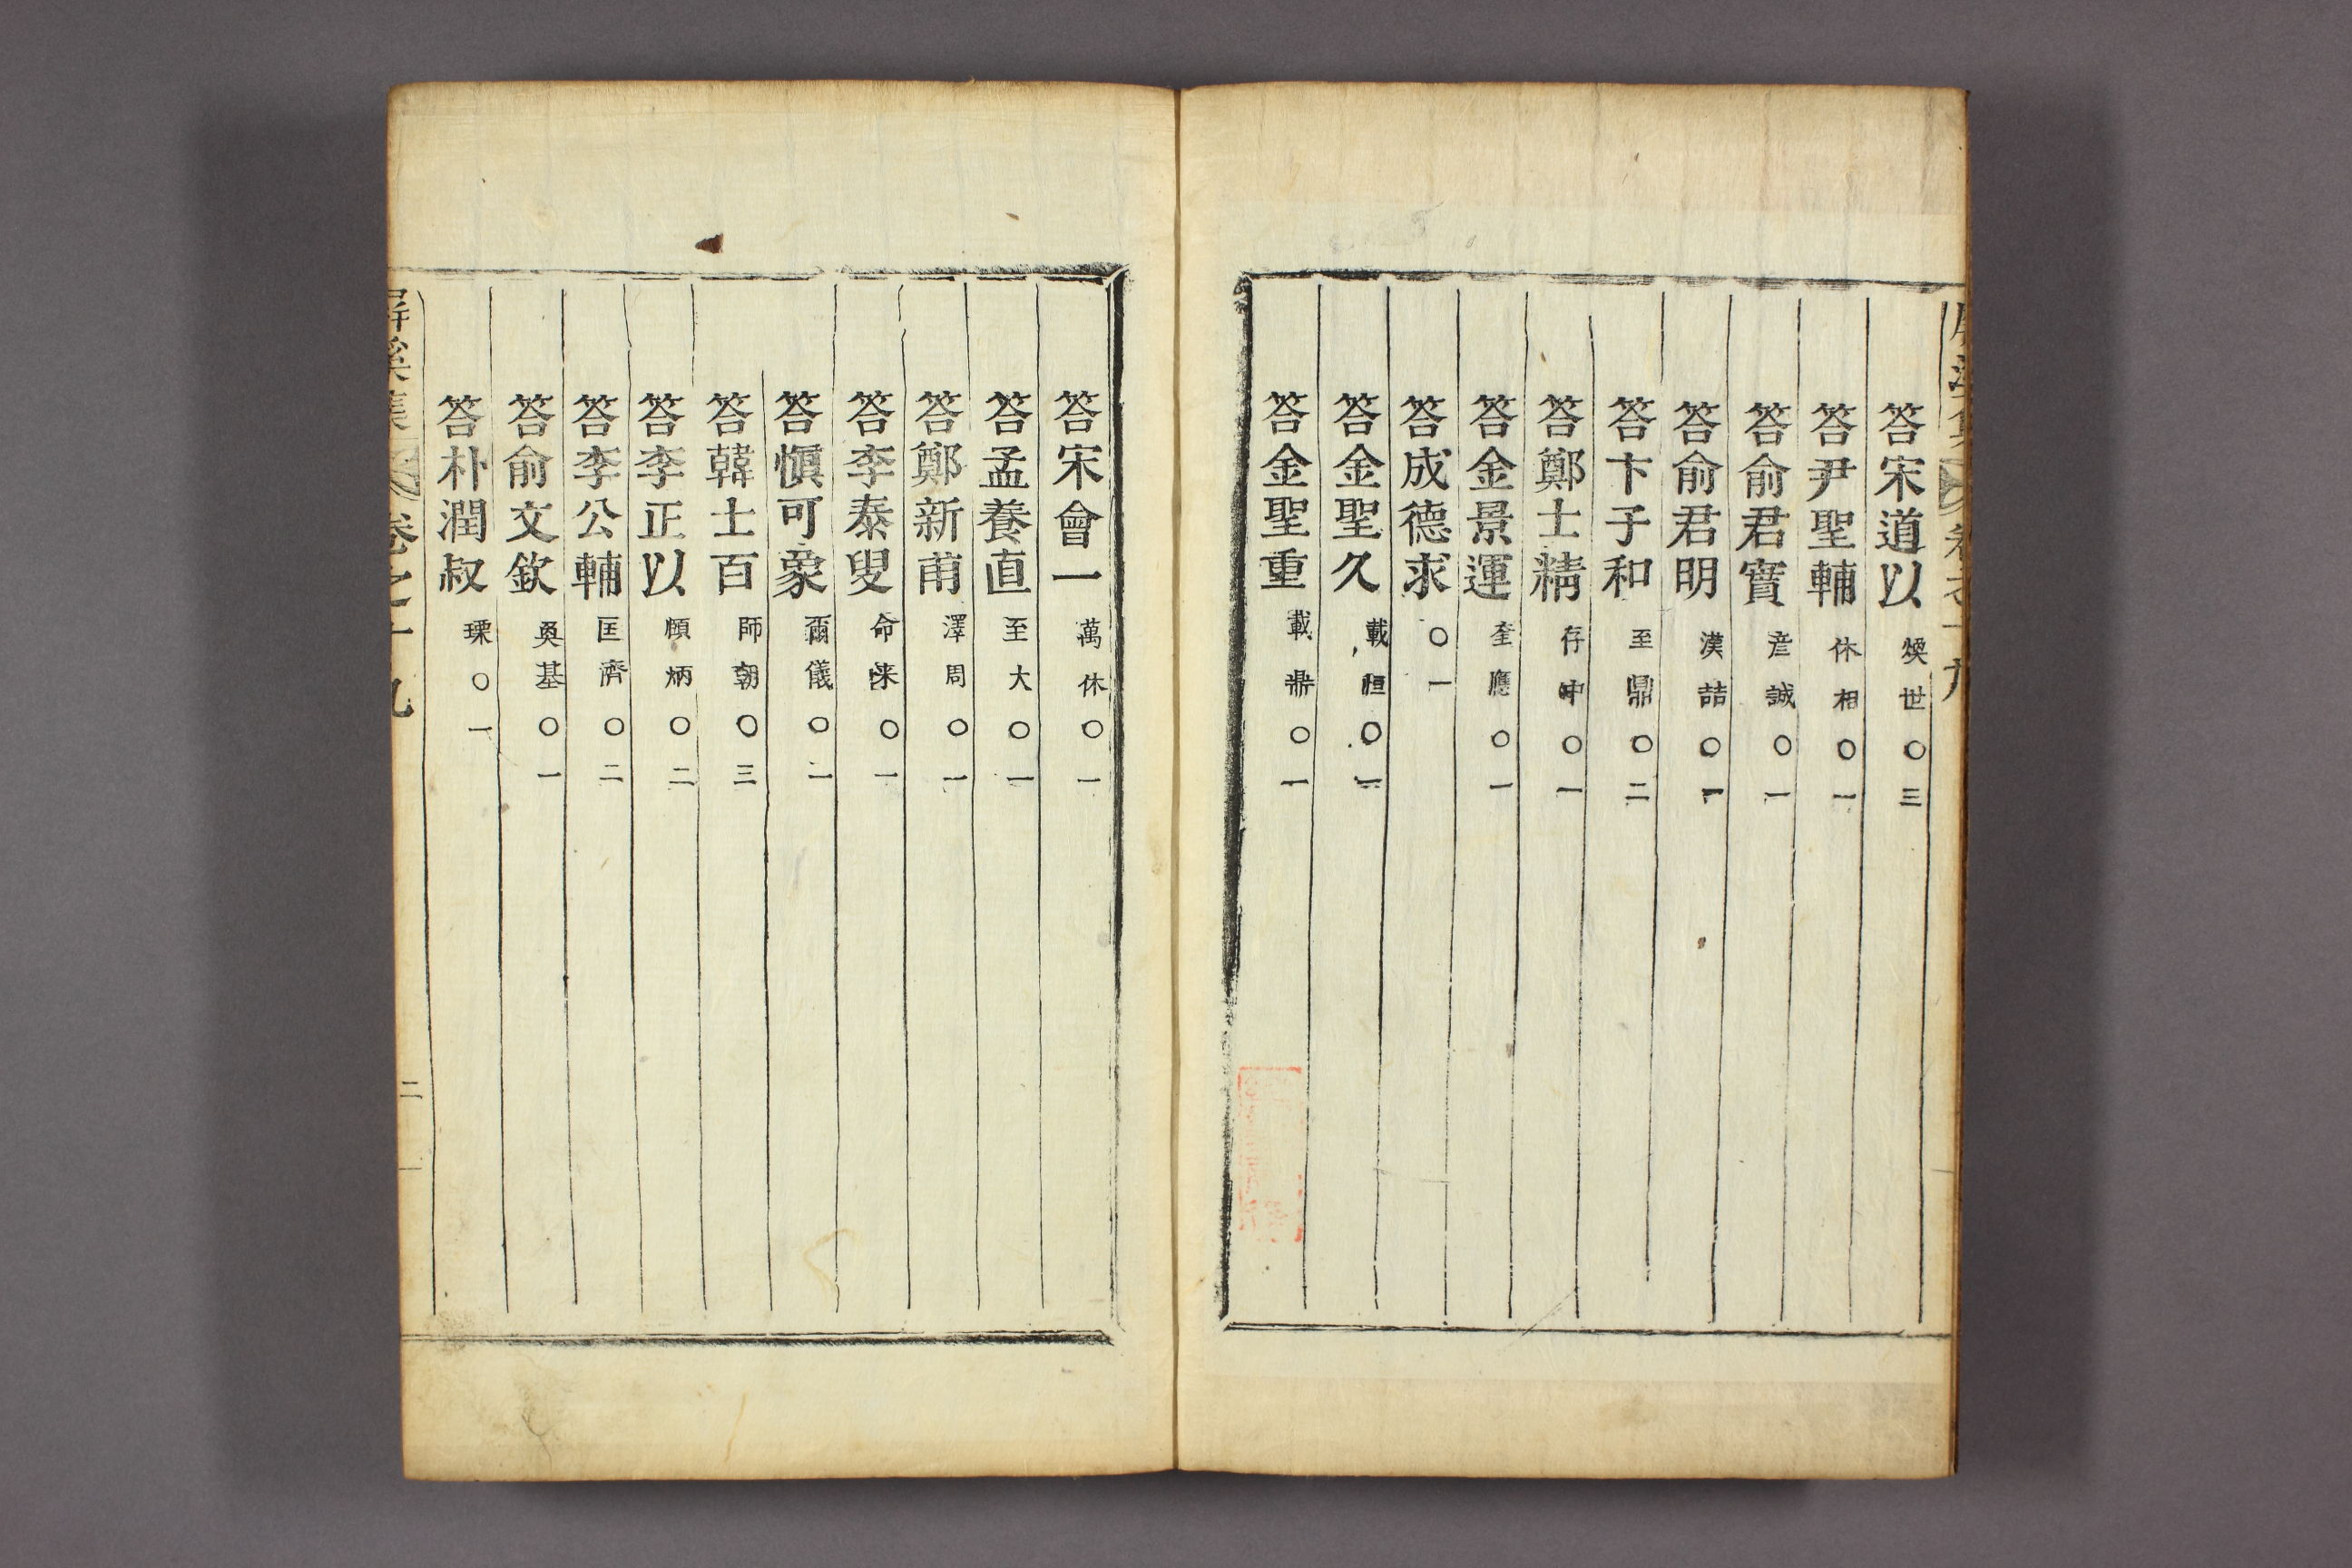 答宋道以 煥世○三
答尹聖輔 休相○一
答俞君實 彦誠○一
答俞君明 漢喆○一
答卞子和 至鼎○二
答鄭士精 存中○一
答金景運 奎應○一
答成德求 ○一
答金聖久 載恒○一
答金聖重 載鼎○一
答宋會一 萬休○一
答孟養直 至大○一
答鄭新甫 澤周○一
答李泰叟 命来○一
答愼可象 爾儀○一
答韓士百 師朝○三
答李正以 頤炳○二
答李公輔 匡濟○二
答俞文欽 奐基○一
答朴潤叔 瑮○一
屏溪集 卷之十九 二